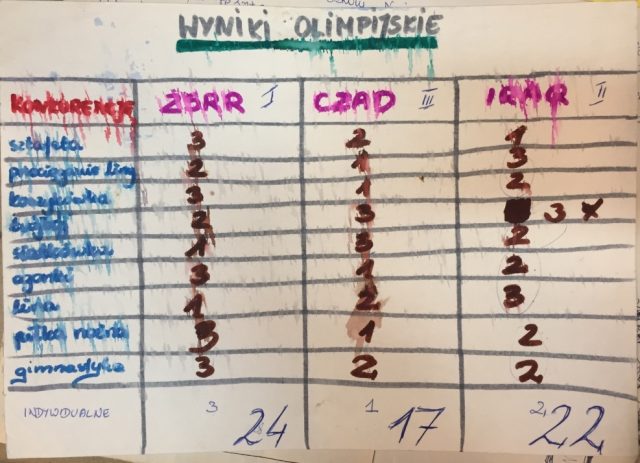 WYNIKI OLIMPIJSKIE
KONKURENCJE ZSRR I CZAD III IRAQ II
sztafeta 3 2 1
przeciąganie liny 2 1 3
koszykówka 3 1 2
2 3 3 x
siatkówka 1 3 2
3 1 2
lina 1 2 3
piłka nożna 3 1 2
gimnastyka 3 2 2
INDYWIDUALNE 3 24 1 17 2 22